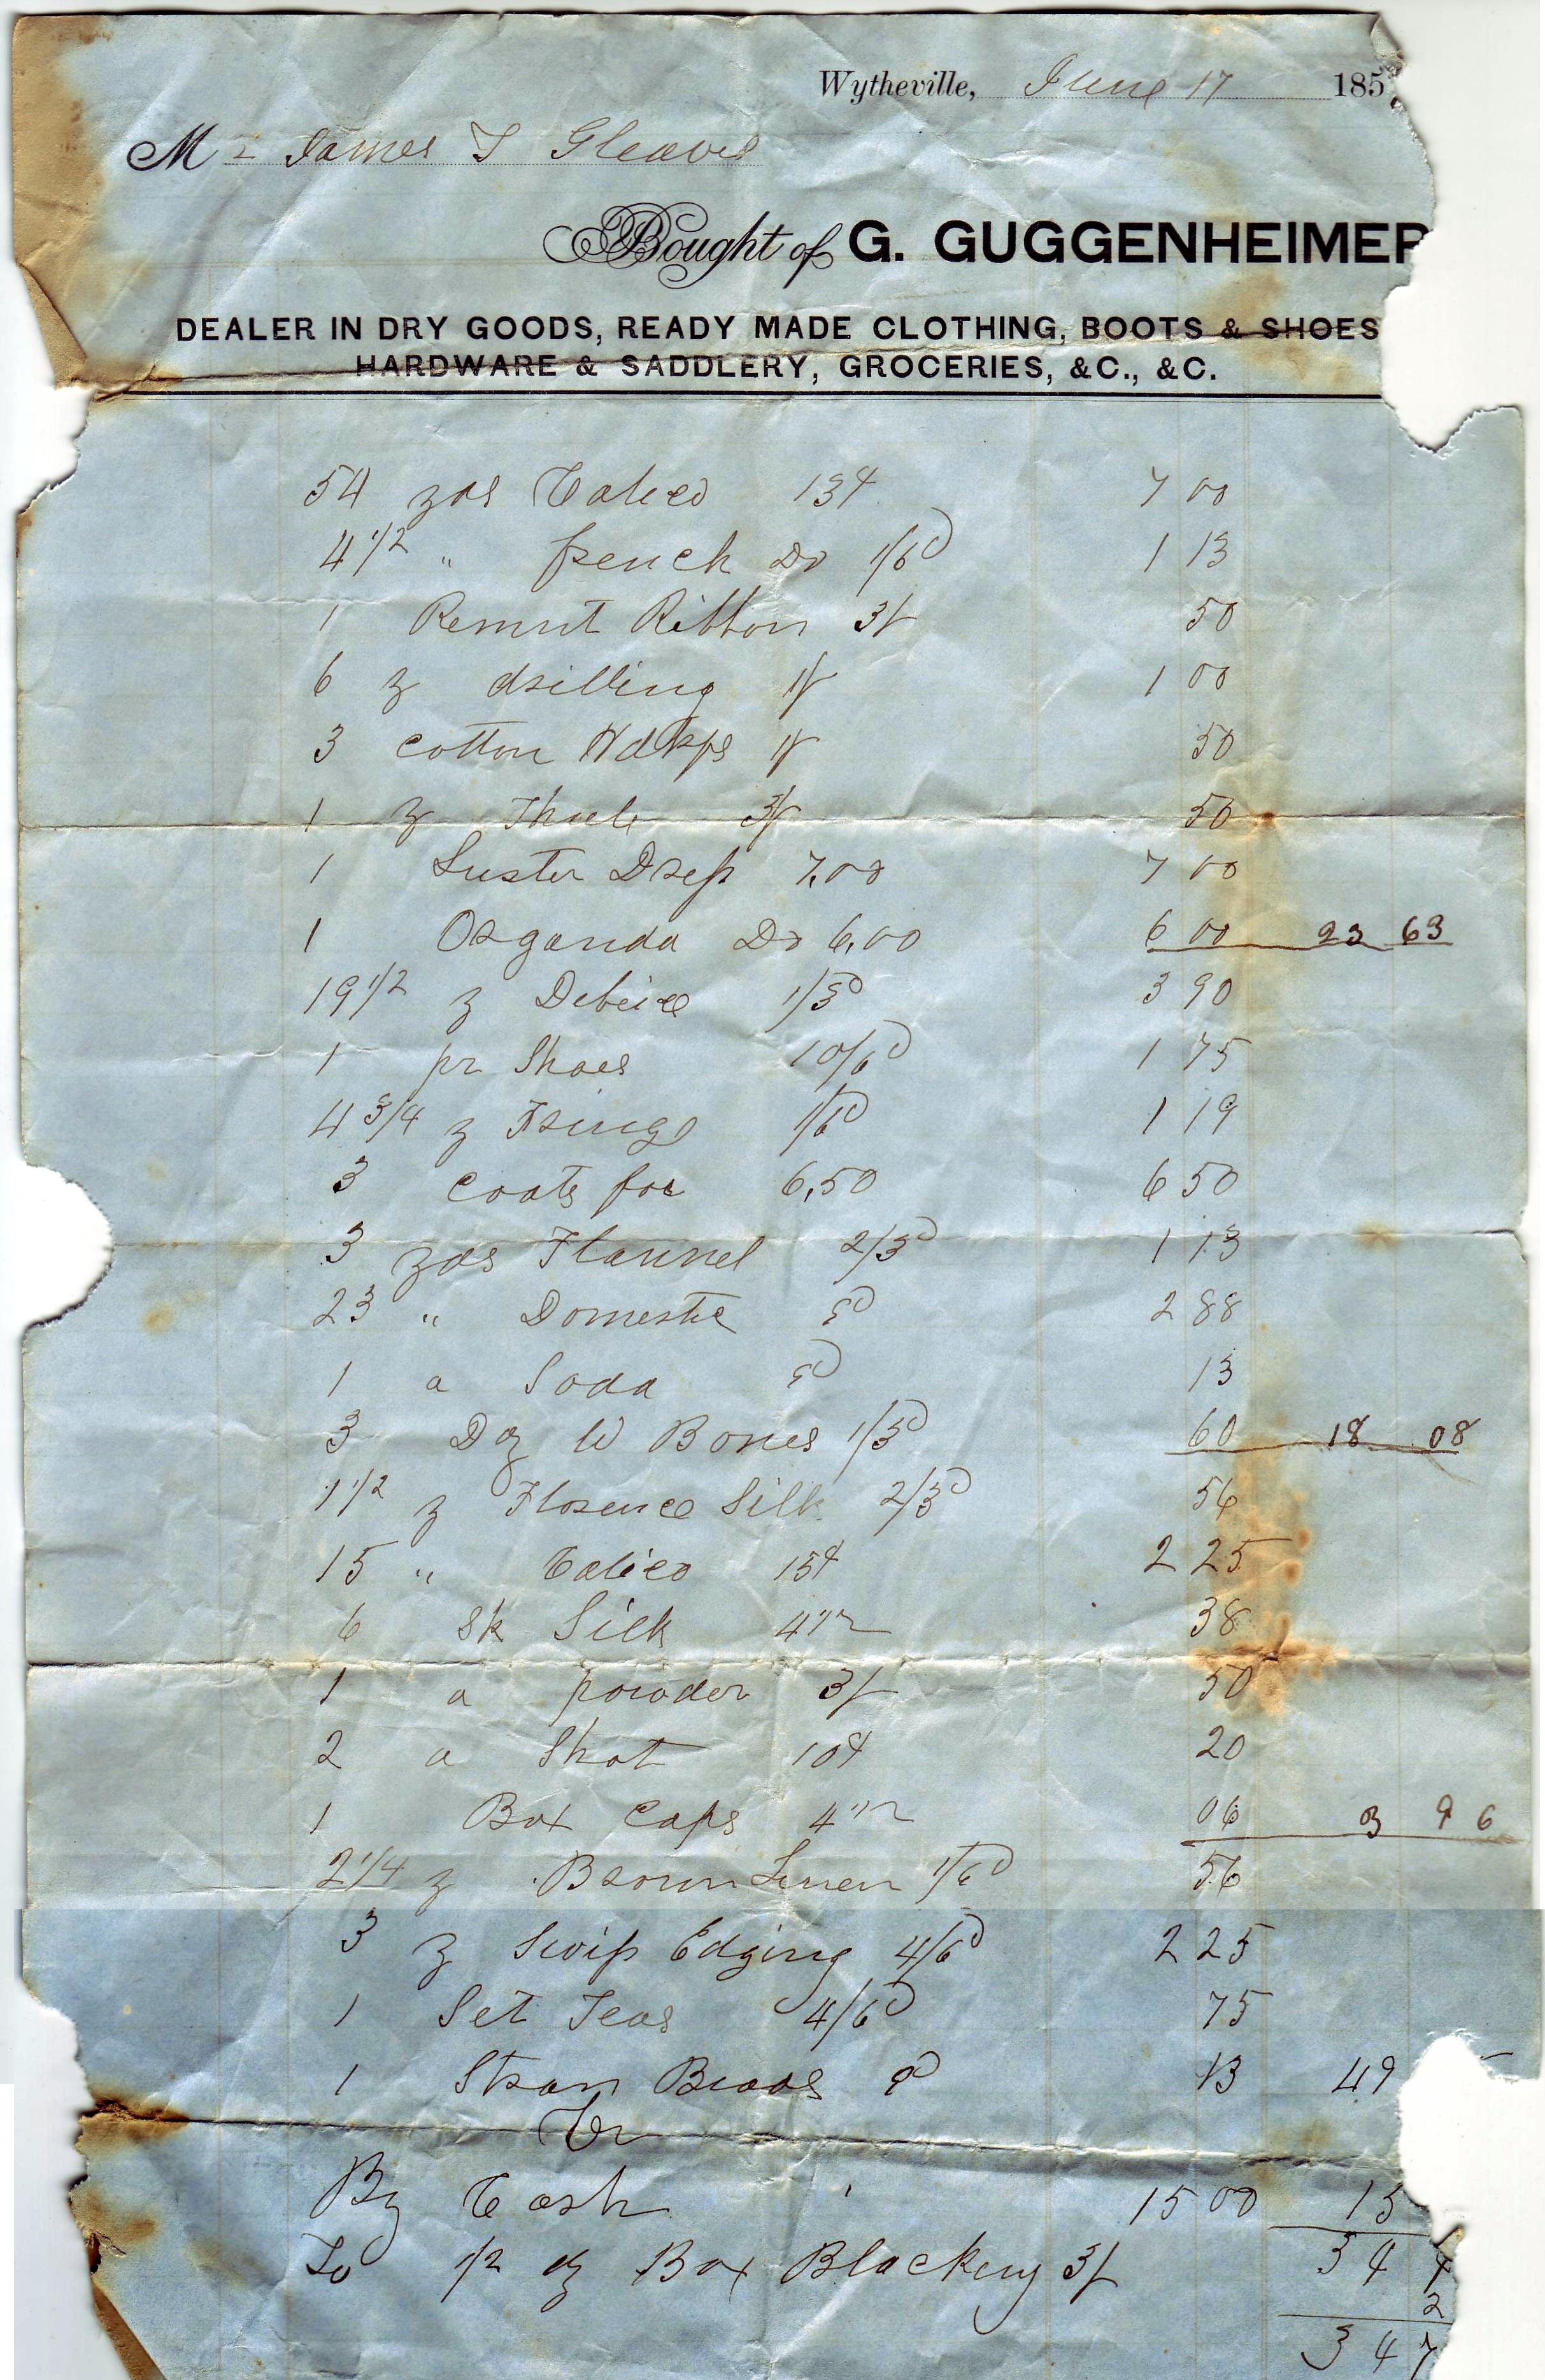 Wytheville, June 17 185
Mr James T Gleaves
Bought of G. GUGGENHEIMER
DEALER IN DRY GOODS, READY MADE CLOTHING, BOOTS & SHOES
HARDWARE & SADDLERY, GROCERIES, &C., &C.
54 yds Calico 13¢ 7 00
4 1/2 " french Do 1/6d 1 13
1 Remnt Ribbon 3/ 50
6 y drilling 1/ 1 00
3 cotton Hdkfs 1/ 50
1 y 3/ 50
1 Luster Dress 7,00 7 00
1 Organda Do 6,00 6 00 23 63
19 1/2 y Debeice 1/3d 3 90
1 pr Shoes 10/6d 1 75
4 3/4 y Fringe 1/6d 1 19
3 Coats for 6,50 6 50
3 yds Flannel 2/3d 1 13
23 " Domestic 9d 2 88
1 a Soda 9d 13
3 Dz W Bones 1/3d 60 18 08
1 1/2 y Florence Silk 2/3d 56
15 " Calico 15¢ 2 25
6 Sk Silk 38
1 a powder 3/ 50
2 a Shot 10¢ 20
1 Box Caps 06 3 96
2 1/4 y Brown Linen 1/6d 56
3 y Swiss Edging 4/6d 2 25
1 Set Teas 4/6d 75
1 Straw 9d 13 49
Cr
By Cash 15 00 15
To 1/2 dz Box Blacking 3/ 34 4
2
34 7